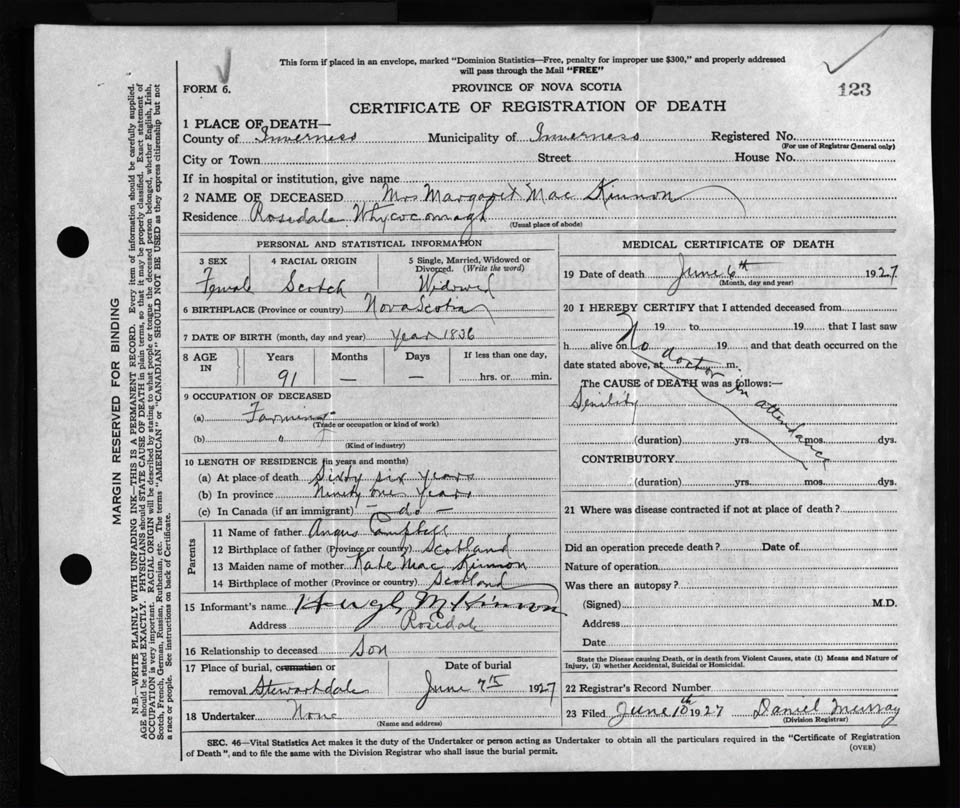 This form if placed in an envelope, marked "Dominion Statistics—Free, penalty for improper use $300," and properly addressed
will pass through the Mail "FREE"
FORM 6.
PROVINCE OF NOVA SCOTIA
123
CERTIFICATE OF REGISTRATION OF DEATH
1 PLACE OF DEATH—
County of Inverness Municipality of Inverness Registered No.
(For use of Registrar General only)
City or Town Street House No.
If in hospital or institution, give name
2 NAME OF DECEASED Mrs Margaret Mac Kinnon
Residence Rosedale Whycocomagh
(Usual place of abode)
PERSONAL AND STATISTICAL INFORMATION
3 SEX 4 RACIAL ORIGIN 5 Single, Married, Widowed or
Divorced. (Write the word)
Female Scotch Widowed
6 BIRTHPLACE (Province or country) Nova Scotia
7 DATE OF BIRTH (month, day and year) Year 1836
8 AGE IN Years Months Days If less than one day,
91 — — hrs. or min.
9 OCCUPATION OF DECEASED
(a) Farming
(Trade or occupation or kind of work)
(b)
(Kind of industry)
10 LENGTH OF RESIDENCE (in years and months)
(a) At place of death Sixty six years
(b) In province Ninety one years
(c) In Canada (if an immigrant) — do —
Parents
11 Name of father Angus Campbell
12 Birthplace of father (Province or country) Scotland
13 Maiden name of mother Kate Mac Kinnon
14 Birthplace of mother (Province or country) Scotland
15 Informant's name Hugh McKinnon
Address Rosedale
16 Relationship to deceased Son
17 Place of burial, cremation or Date of burial
removal Stewartdale June 7th 1927
18 Undertaker None
(Name and address)
MEDICAL CERTIFICATE OF DEATH
19 Date of death June 6th 1927
(Month, day and year)
20 I HEREBY CERTIFY that I attended deceased from
19 to 19 that I last saw
h alive on 19 and that death occurred on the
date stated above, at m.
No doctor in attendance
The CAUSE of DEATH was as follows:—
Senility
(duration) yrs. mos. dys.
CONTRIBUTORY
(duration) yrs. mos. dys.
21 Where was disease contracted if not at place of death?
Did an operation precede death? Date of
Nature of operation
Was there an autopsy?
(Signed) M.D.
Address
Date
State the Disease causing Death, or in death from Violent Causes, state (1) Means and Nature of
Injury, (2) whether Accidental, Suicidal or Homicidal.
22 Registrar's Record Number
23 Filed June 10th 1927 Daniel Murray
(Division Registrar)
SEC. 46—Vital Statistics Act makes it the duty of the Undertaker or person acting as Undertaker to obtain all the particulars required in the "Certificate of Registration
of Death", and to file the same with the Division Registrar who shall issue the burial permit.
(OVER)
MARGIN RESERVED FOR BINDING
N.B.—WRITE PLAINLY WITH UNFADING INK—THIS IS A PERMANENT RECORD. Every item of information should be carefully supplied.
AGE should be stated EXACTLY. PHYSICIANS should STATE CAUSE OF DEATH in plain terms, so that it may be properly classified. Exact statement of
OCCUPATION is very important. RACIAL ORIGIN will be described by stating to what people or tongue the deceased person belonged, whether English, Irish,
Scotch, French, German, Russian, Ruthenian, etc. The terms "AMERICAN" or "CANADIAN" SHOULD NOT BE USED as they express citizenship but not
a race or people. See instructions on back of Certificate.